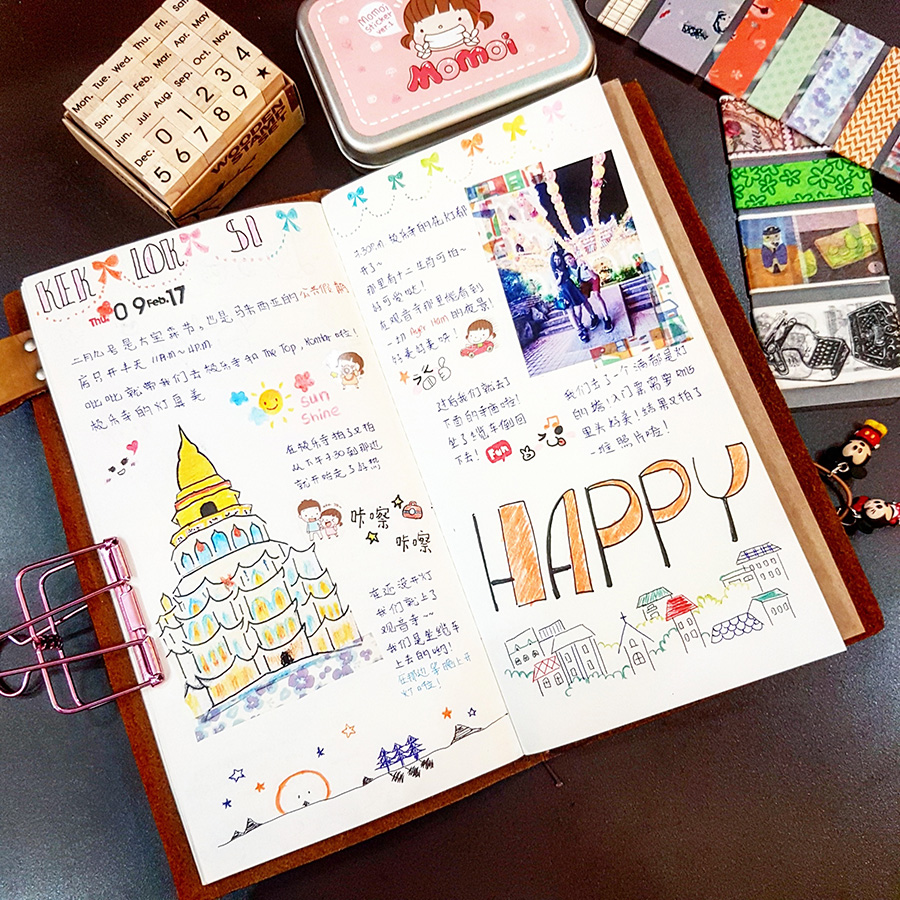 Mon. Tue. Wed. Thu. Fri. Sat.
Sun. Jan. Feb. Mar. Apr. May.
Jun. Jul. Aug. Sep. Oct. Nov.
Dec. 0 1 2 3 4
5 6 7 8 9 ★
WOODEN
STAMP
Momoi
Sticker
ver.1
Momoi
KEK LOK SI
Thu. 09 Feb. 17
二月九号是大宝森节，也是马来西亚的公共假期
后只开半天 11am~4pm
吡吡就带我们去极乐寺和 The Top, Komtar 啦！
极乐寺的灯真美
sun
shine
在极乐寺拍了又拍
从下午
咔嚓
咔嚓
在还没开灯
我们就上了
观音寺~~
我们是坐缆车
上去的哟！
在那边等晚上开
灯啦！
7.30pm 极乐寺的花灯都
开了~
那里有十二生肖可拍~
好可爱哒！
在观音寺那里能看到
一切 Ayer Itam 的夜景
好美好美呀！
过后我们就去了
下面的寺庙啦！
坐了缆车倒回
下去！
Fun
我们去了一个满都是灯
的塔！入门票需要 RM2
里头好美！结果又拍了
一堆照片啦！
HAPPY